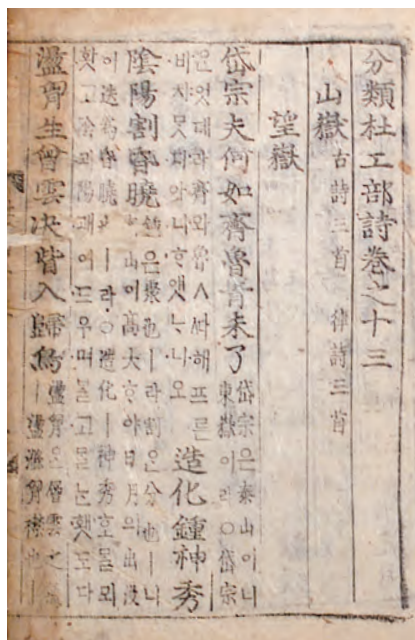 分類杜工部詩卷之十三
山嶽 古詩三首 律詩三首
望嶽
岱宗夫何如齊魯青未了 岱宗은泰山이니
東嶽이라○岱宗
은엇대라齊와魯ㅅᄯᅡ해프른
비치못디아니ᄒᆞ얫ᄂᆞ니오 造化鍾神秀
陰陽割昏曉 鍾은聚也ㅣ라割은分也ㅣ니
山이高大ᄒᆞ야日月의出沒
이迭爲昏曉ㅣ라○造化ㅣ神秀호ᄆᆞᆯ뫼
홧고陰과陽괘어드우며ᄇᆞᆯ고ᄆᆞᆯ 횃도다
盪胷生曾雲決眥入歸鳥 盪胷은層雲之
ㅣ盪滌胷襟也ㅣ